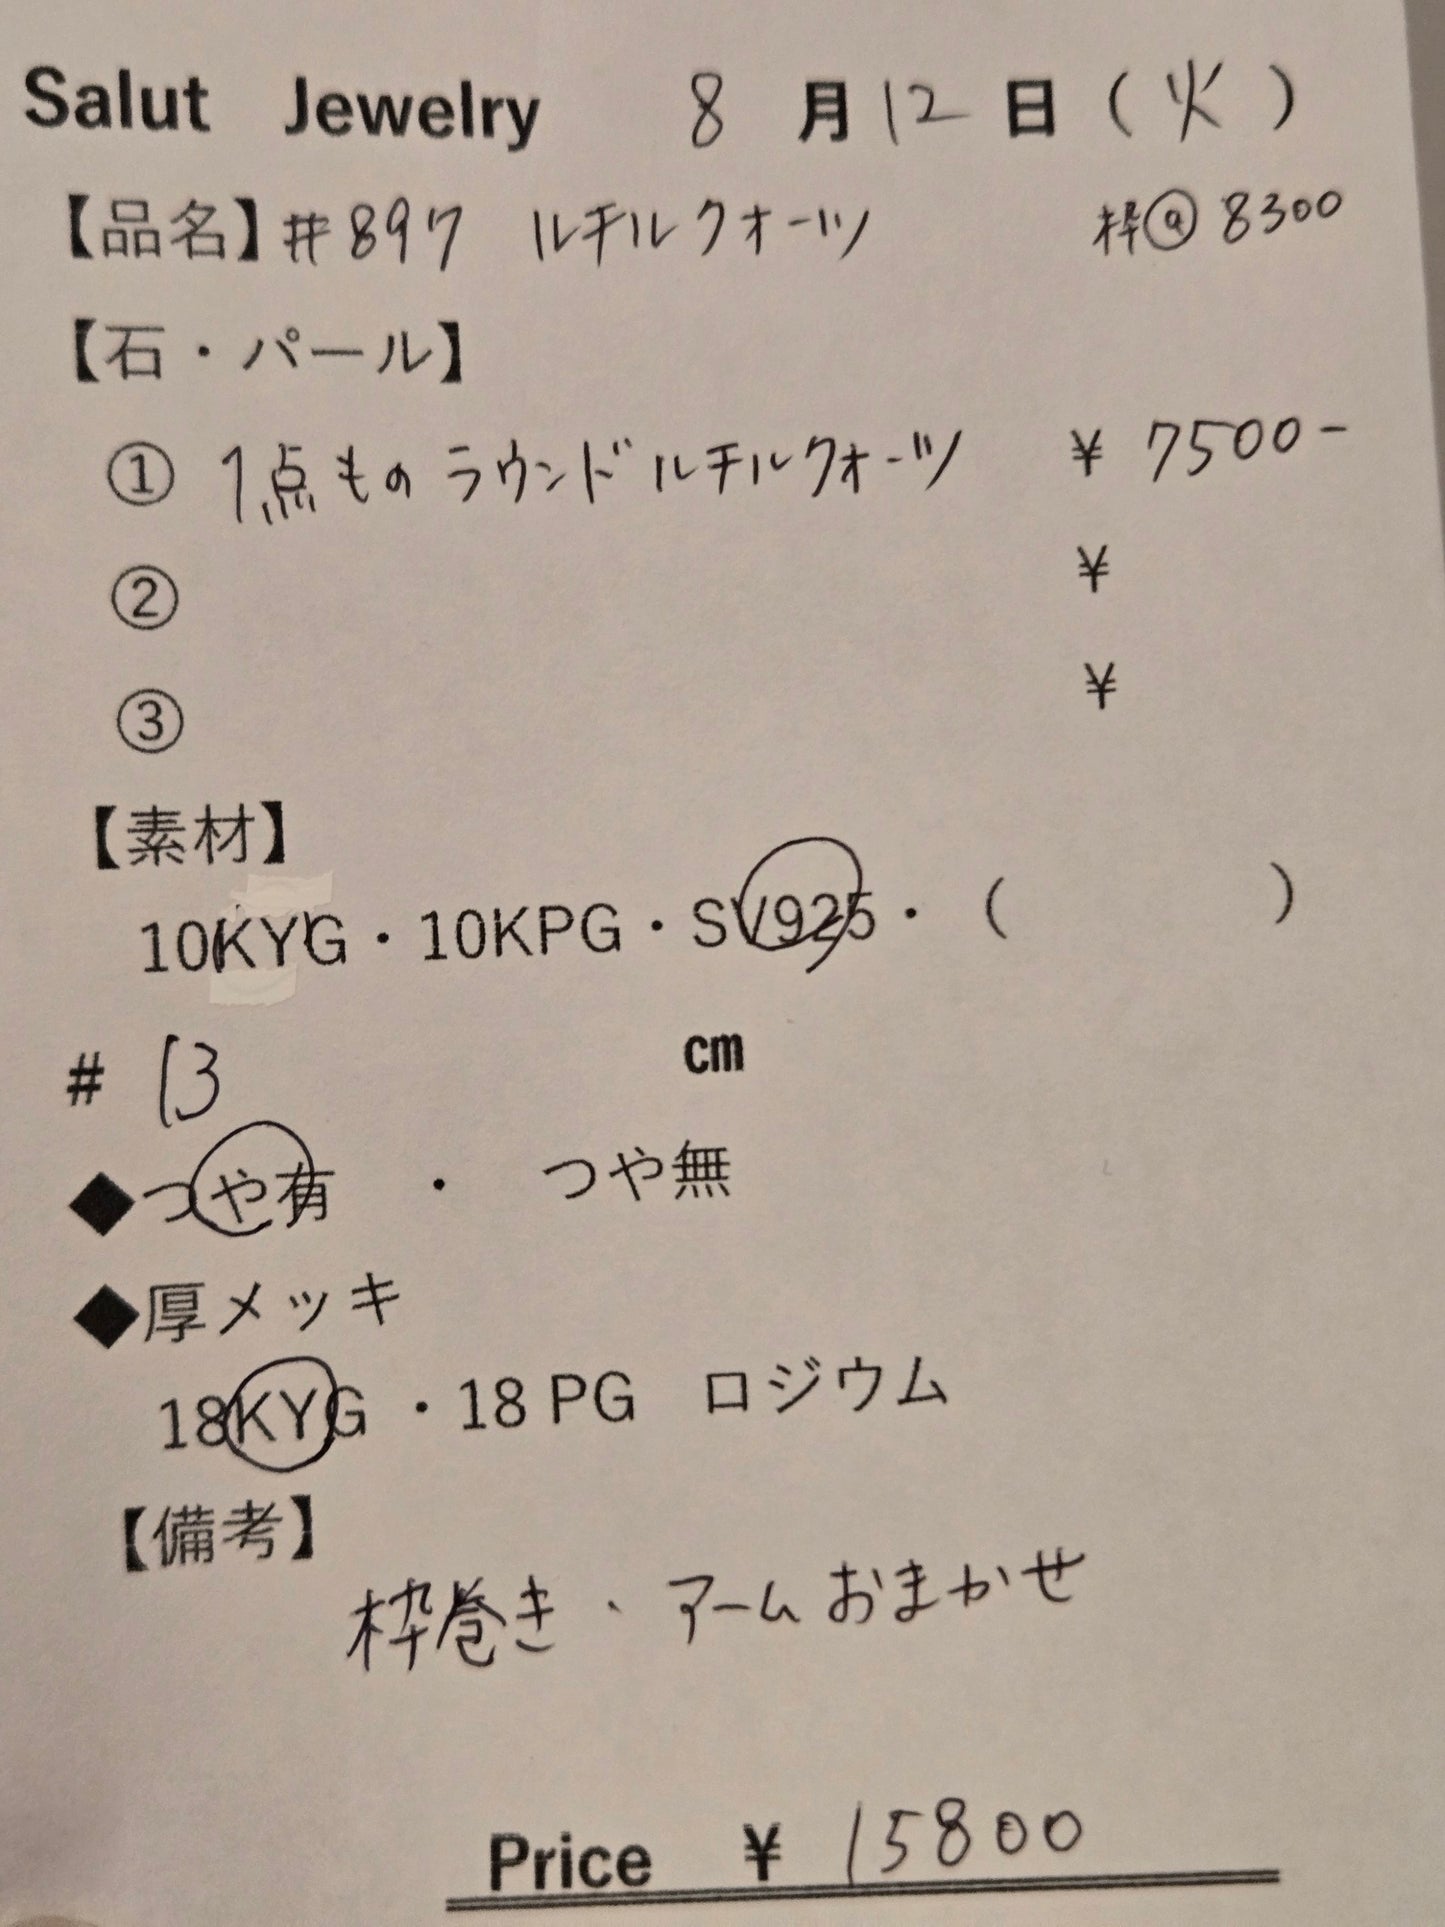 Salut Jewelry 8月12日(火)
【品名】#897 ルチルクォーツ 枠@8300
【石・パール】
① 1点もの ラウンドルチルクォーツ ¥7500-
② ¥
③ ¥
【素材】
10KYG・10KPG・SV925・( )
# 13 cm
◆つや有 ・ つや無
◆厚メッキ
18KYG ・18 PG ロジウム
【備考】
枠巻き・アームおまかせ
Price ¥ 15800